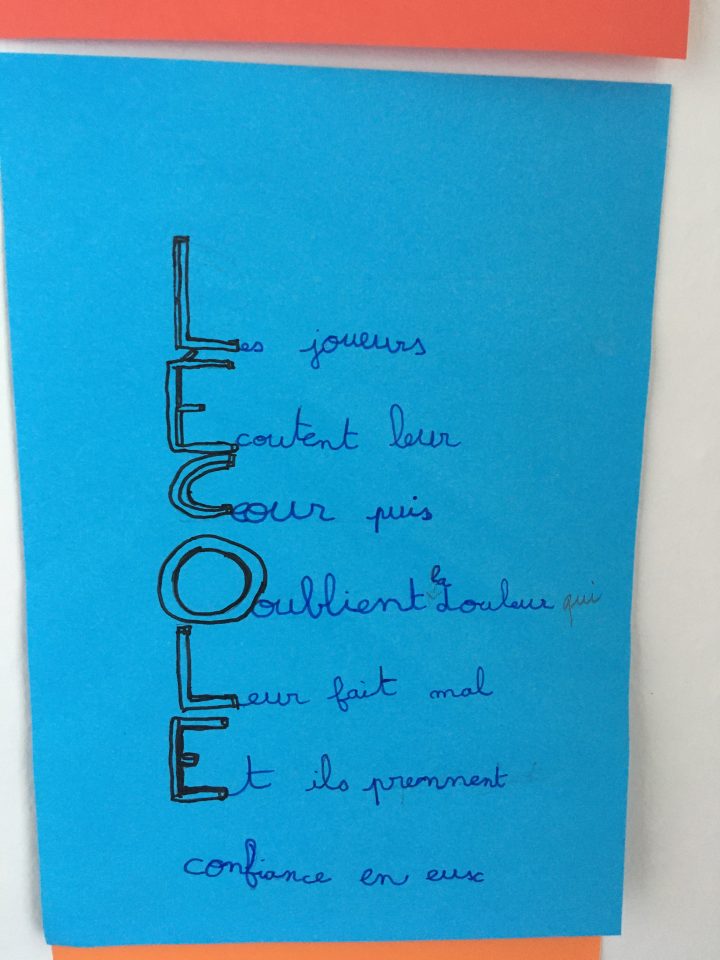 Les joueurs
Écoutent leur
puis
Ooublient la douleur qui
Leur fait mal
Et ils prennent
confiance en eux